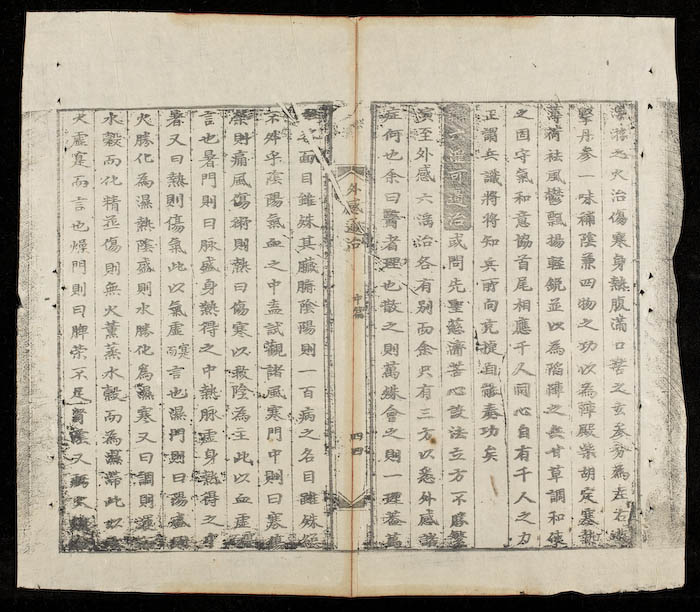 浮游之火治傷寒身熱腹滿口苦之玄參分為左右
擊丹參一味補陰兼四物之功以為陣殿柴胡定塞熱
薄荷祛風鬱飄揚輕銳並以為陷陣之兵甘草調和使
之固守氣和意協首尾相應千人同心自有千人之力
正謂兵識將將知兵所向克捷自能奏功矣
六淫可通治或問先聖慈濟苦心設法立方不勝繁
演至外感六滛治各有別而余只有三方以悉外感諸
症何也余曰醫者理也散之則萬殊會之則一理葢萬
外感通治 中篇 四四
面目雖殊其臟腑陰陽則一百病之名目雖殊
不外乎陰陽氣血之中盍試觀諸風寒門中則曰寒傷
榮則痛風傷衛則熱曰傷寒以救陰為主此以血虛
言也暑門則曰脉盛身熱得之中熱脉虛身熱得之
暑又曰熱則傷氣此以氣虛寒而言也濕門則曰陽盛
火勝化為濕熱陰盛則水勝化為濕寒又曰調則
水穀而化精並傷則無火薰蒸水穀而為濕滯此以
火虛寔而言也燥門則曰脾榮不足腎陰又虧火